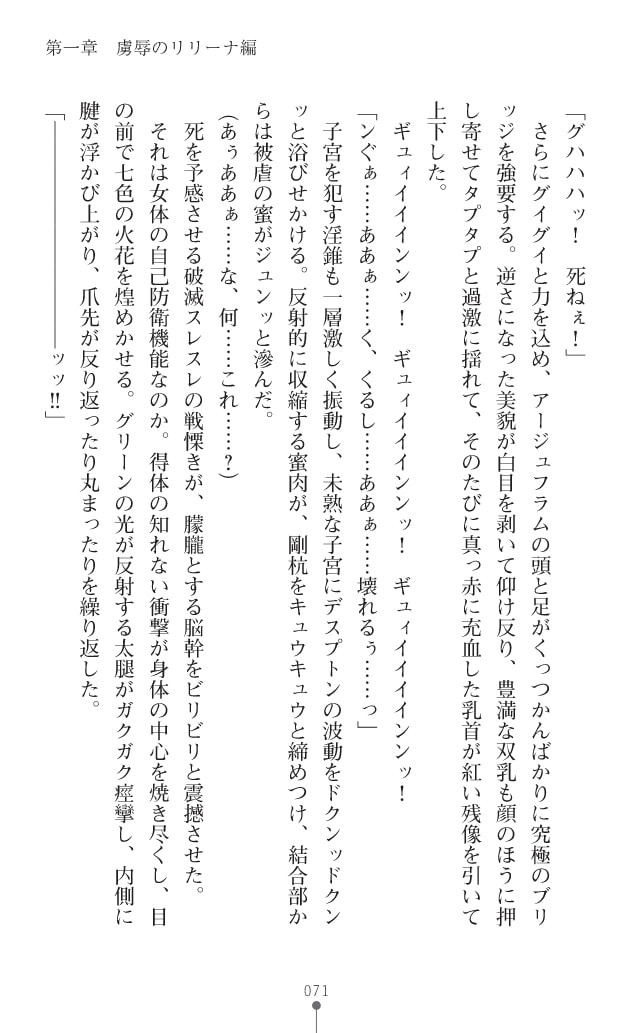 第一章　虜辱のリリーナ編
「グハハハッ！　死ねぇ！」
　さらにグイグイと力を込め、アージュフラムの頭と足がくっつかんばかりに究極のブリ
ッジを強要する。逆さになった美貌が白目を剥いて仰け反り、豊満な双乳も顔のほうに押
し寄せてタプタプと過激に揺れて、そのたびに真っ赤に充血した乳首が紅い残像を引いて
上下した。
　ギュィイイイインンッ！　ギュィイイイインンッ！　ギュィイイイインンッ！
「ンぐぁ……ああぁ……く、くるし……ああぁ……壊れるぅ……っ」
　子宮を犯す淫錐も一層激しく振動し、未熟な子宮にデスプトンの波動をドクンッドクン
ッと浴びせかける。反射的に収縮する蜜肉が、剛杭をキュウキュウと締めつけ、結合部か
らは被虐の蜜がジュンッと滲んだ。
（あぅああぁ……な、何……これ……？）
　死を予感させる破滅スレスレの戦慄きが、朦朧とする脳幹をビリビリと震撼させた。
　それは女体の自己防衛機能なのか。得体の知れない衝撃が身体の中心を焼き尽くし、目
の前で七色の火花を煌めかせる。グリーンの光が反射する太腿がガクガク痙攣し、内側に
腱が浮かび上がり、爪先が反り返ったり丸まったりを繰り返した。
「――――――――――ッッ!!」
071